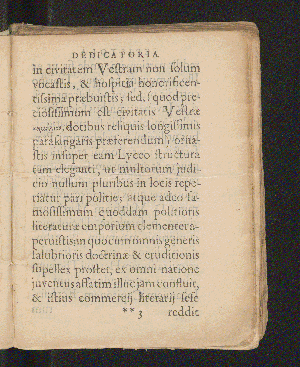 DEDICATORIA
in civitatem Vestram non solum
vocastis, & hospitio honorificen-
tissimo præbuistis; sed, quod pre-
ciosissimum est civitatis Vestræ
dotibus reliquis longissimis
parasangaris præferendum, orna-
stis insuper eam Lyceo structura
tam eleganti, ut multorum judi-
cio nullum pluribus in locis repe-
riatur pari politie; atque adeo fa-
mosissimum quoddam politioris
literaturæ emporium clementer a-
peruistis; in quo cum omnis generis
salubrioris doctrinæ & eruditionis
supellex prostet, ex omni natione
juventus affatim illuc jam confluit,
& istius commercij literarij sese
** 3 reddit